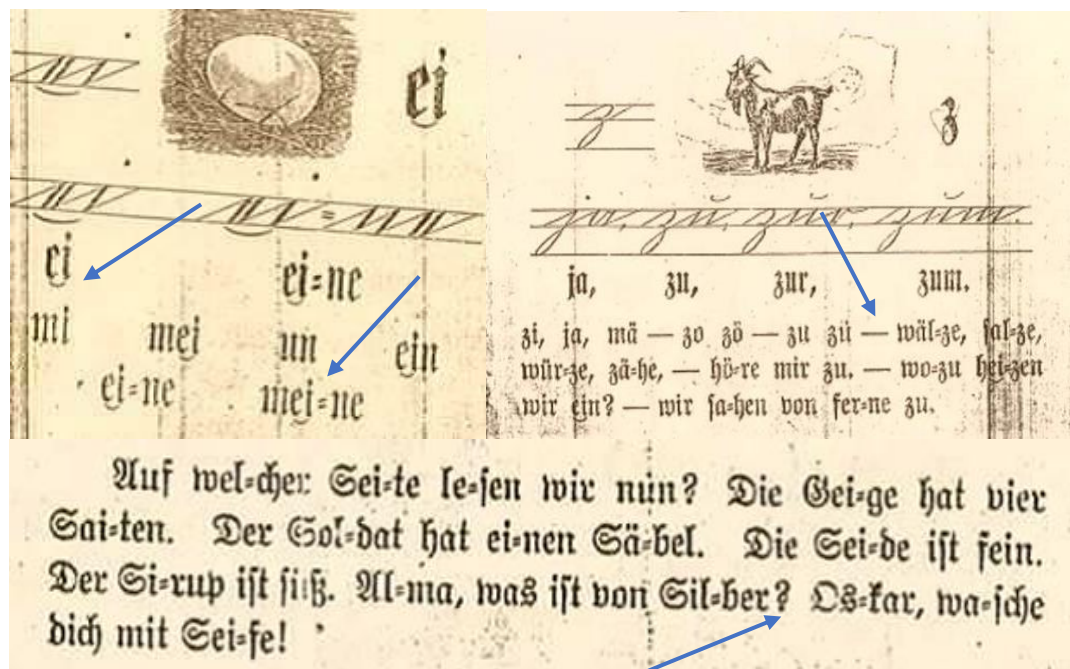 ei
ei
ei ei=ne
mi mei ein
ei=ne mei=ne
z z
ja, zu, zur, zum.
ja, zu, zur, zum.
zi, ja, mä — zo zö — zu zü — wäl=ze, sal=ze,
wür=ze, zä=he, — hö=re mir zu. — wo=zu hei=zen
wir ein? — wir sa=hen von fer=ne zu.
Auf wel=cher Sei=te le=sen wir nun? Die Gei=ge hat vier
Sai=ten. Der Sol=dat hat ei=nen Sä=bel. Die Sei=de ist fein.
Der Si=rup ist süß. Al=ma, was ist von Sil=ber? Os=kar, wa=sche
dich mit Sei=fe!